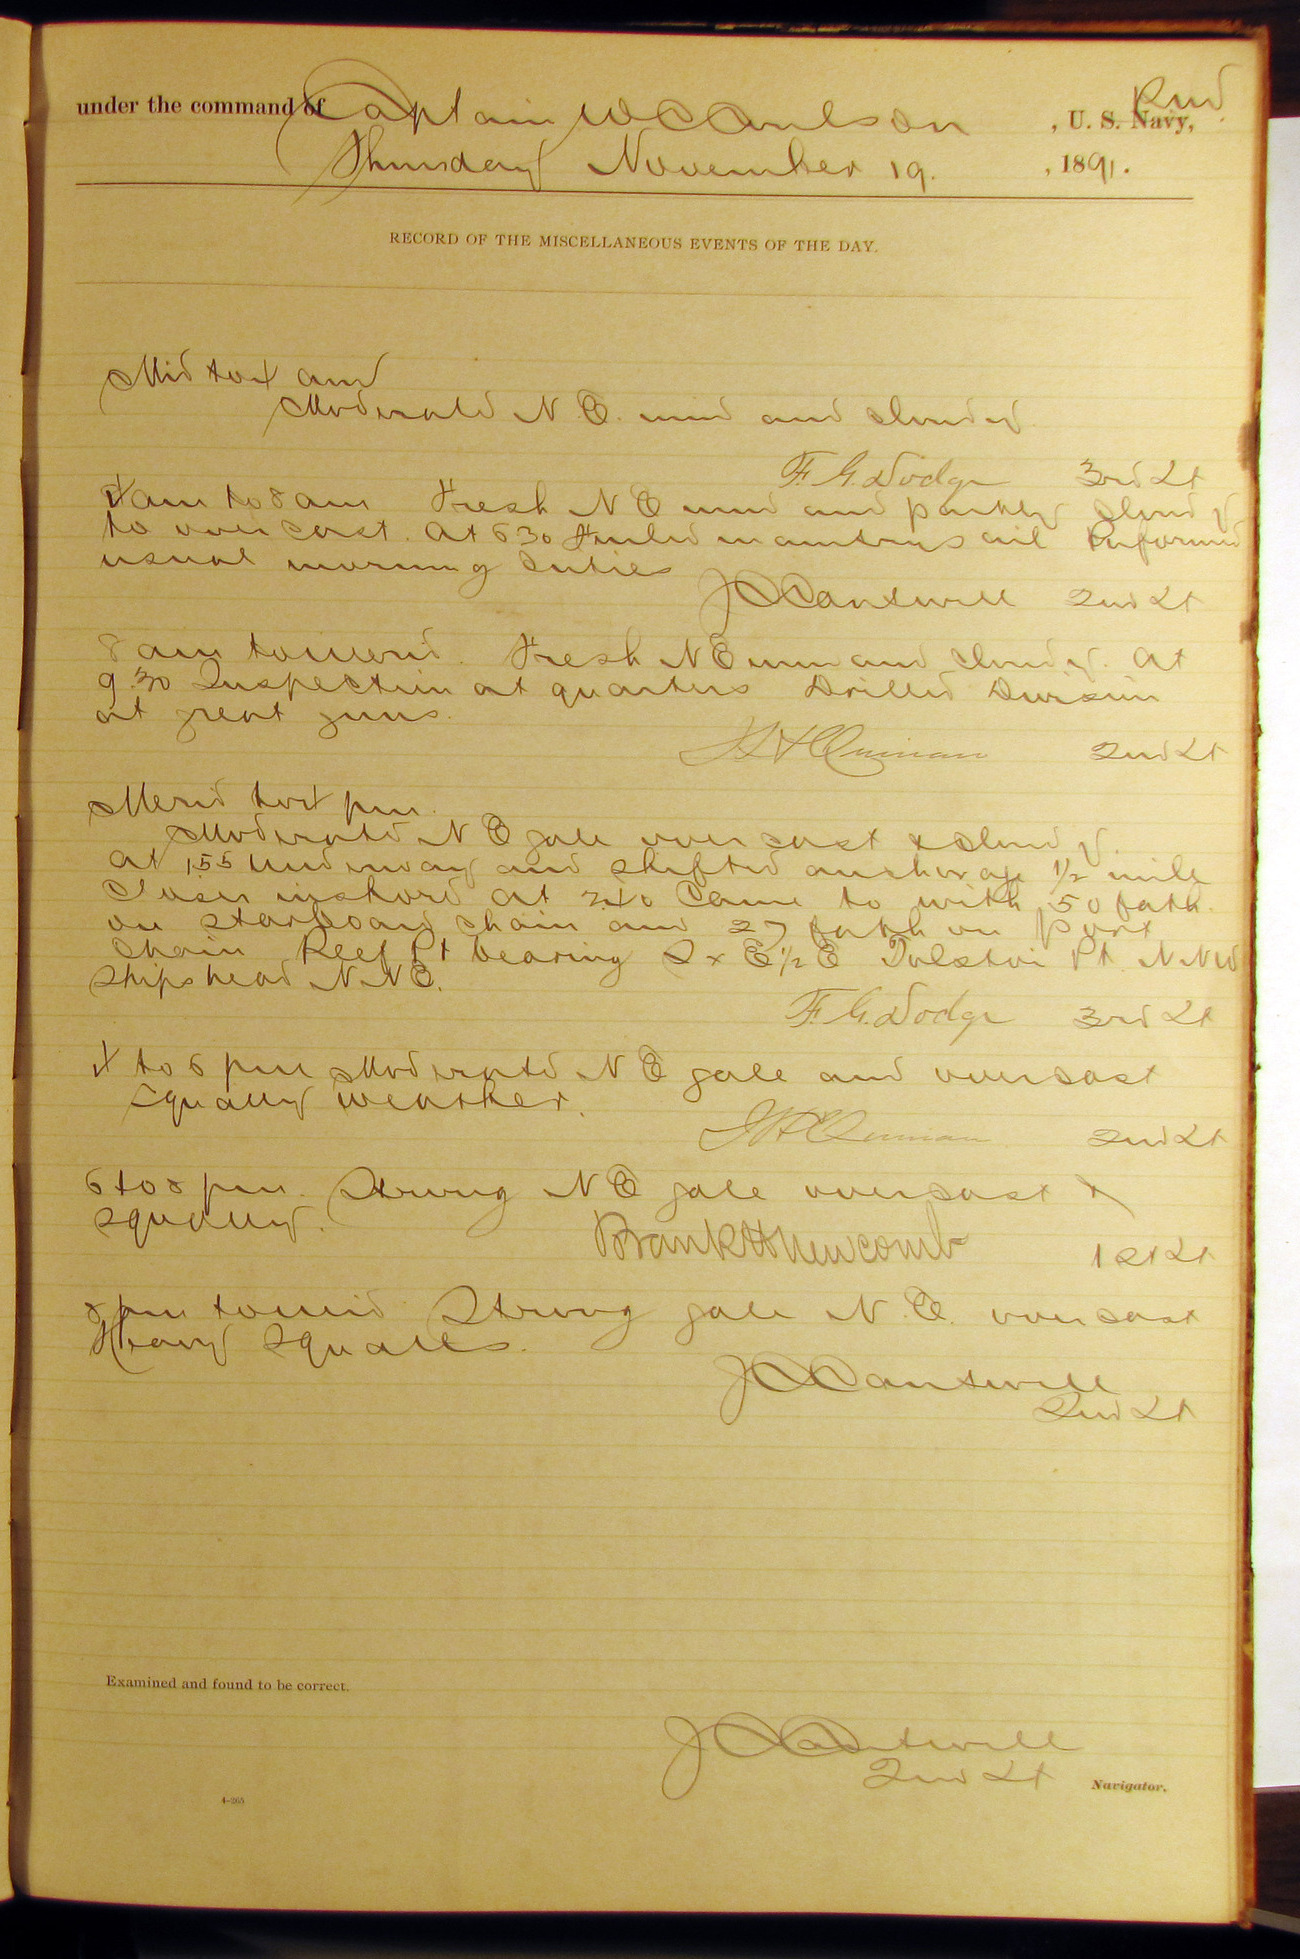 under the command of Captain W C Coulson, U. S. Navy, R M
Thursday November 19, 1891.
RECORD OF THE MISCELLANEOUS EVENTS OF THE DAY.
Mid to 4 am
Moderate N.E. wind and cloudy
F. G. Dodge 3rd Lt
4 am to 8 am Fresh N E wind and partly cloudy
to overcast. At 630 Furled main trysail Performed
usual morning duties
J C Cantwell 2nd Lt
8 am to merid. Fresh N E wind and cloudy. At
9.30 Inspection at quarters Drilled Division
at great guns.
J H Quinan 2nd Lt
Merid to 4 pm.
Moderate N E gale overcast & cloudy.
At 1,55 Underway and shifted anchorage 1/2 mile
closer inshore at 2.40 came to with 50 fath.
on starboard chain and 27 fath on port
chain Reef Pt bearing S x E 1/2 E Tolstoi Pt N N W
Ships head N N E.
F. G. Dodge 3rd Lt
4 to 6 pm Moderate N E gale and overcast
squally weather.
J H Quinan 2nd Lt
6 to 8 pm. Strong N E gale overcast &
squally.
Frank H Newcomb 1st Lt
8 pm to mid Strong gale N. E. overcast
Heavy squalls.
J C Cantwell
2nd Lt
Examined and found to be correct.
J C Cantwell
2nd Lt Navigator.
4—265